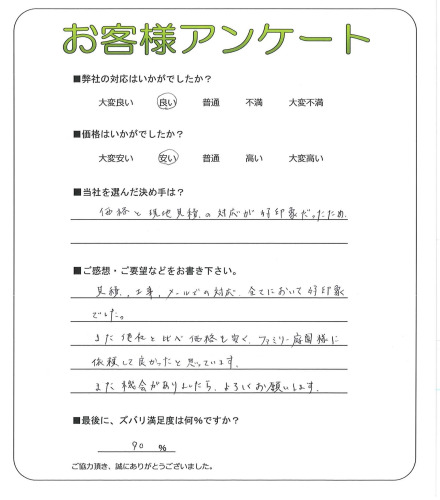 お客様アンケート
■弊社の対応はいかがでしたか？
大変良い 良い 普通 不満 大変不満
■価格はいかがでしたか？
大変安い 安い 普通 高い 大変高い
■当社を選んだ決め手は？
価格と現地見積の対応が好印象だったため
■ご感想・ご要望などをお書き下さい。
見積、工事、メールでの対応、全てにおいて好印象
でした。
また他社と比べ価格も安く、ファミリー庭園様に
依頼して良かったと思っています。
また機会がありましたら、よろしくお願いします。
■最後に、ズバリ満足度は何％ですか？
90 ％
ご協力頂き、誠にありがとうございました。